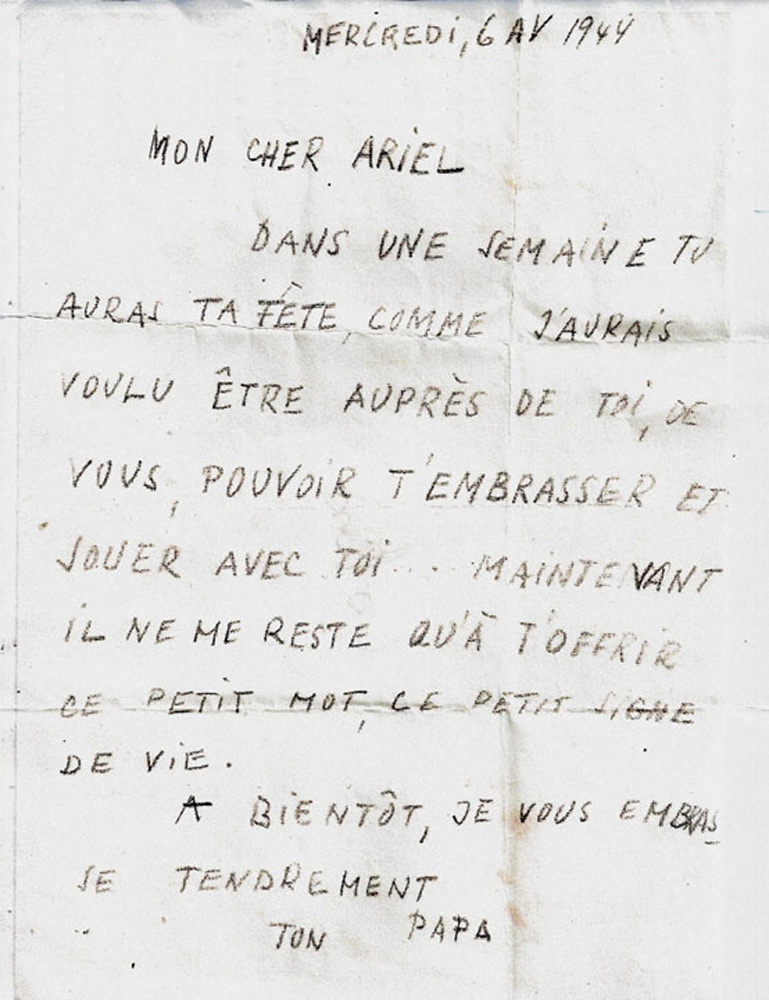 MERCREDI, 6 AV 1944
MON CHER ARIEL
DANS UNE SEMAINE TU
AURAS TA FÊTE, COMME J'AURAIS
VOULU ÊTRE AUPRÈS DE TOI, DE
VOUS, POUVOIR T'EMBRASSER ET
JOUER AVEC TOI... MAINTENANT
IL NE ME RESTE QU'À T'OFFRIR
CE PETIT MOT, CE PETIT SIGNE
DE VIE.
A BIENTÔT, JE VOUS EMBRAS
SE TENDREMENT
TON PAPA